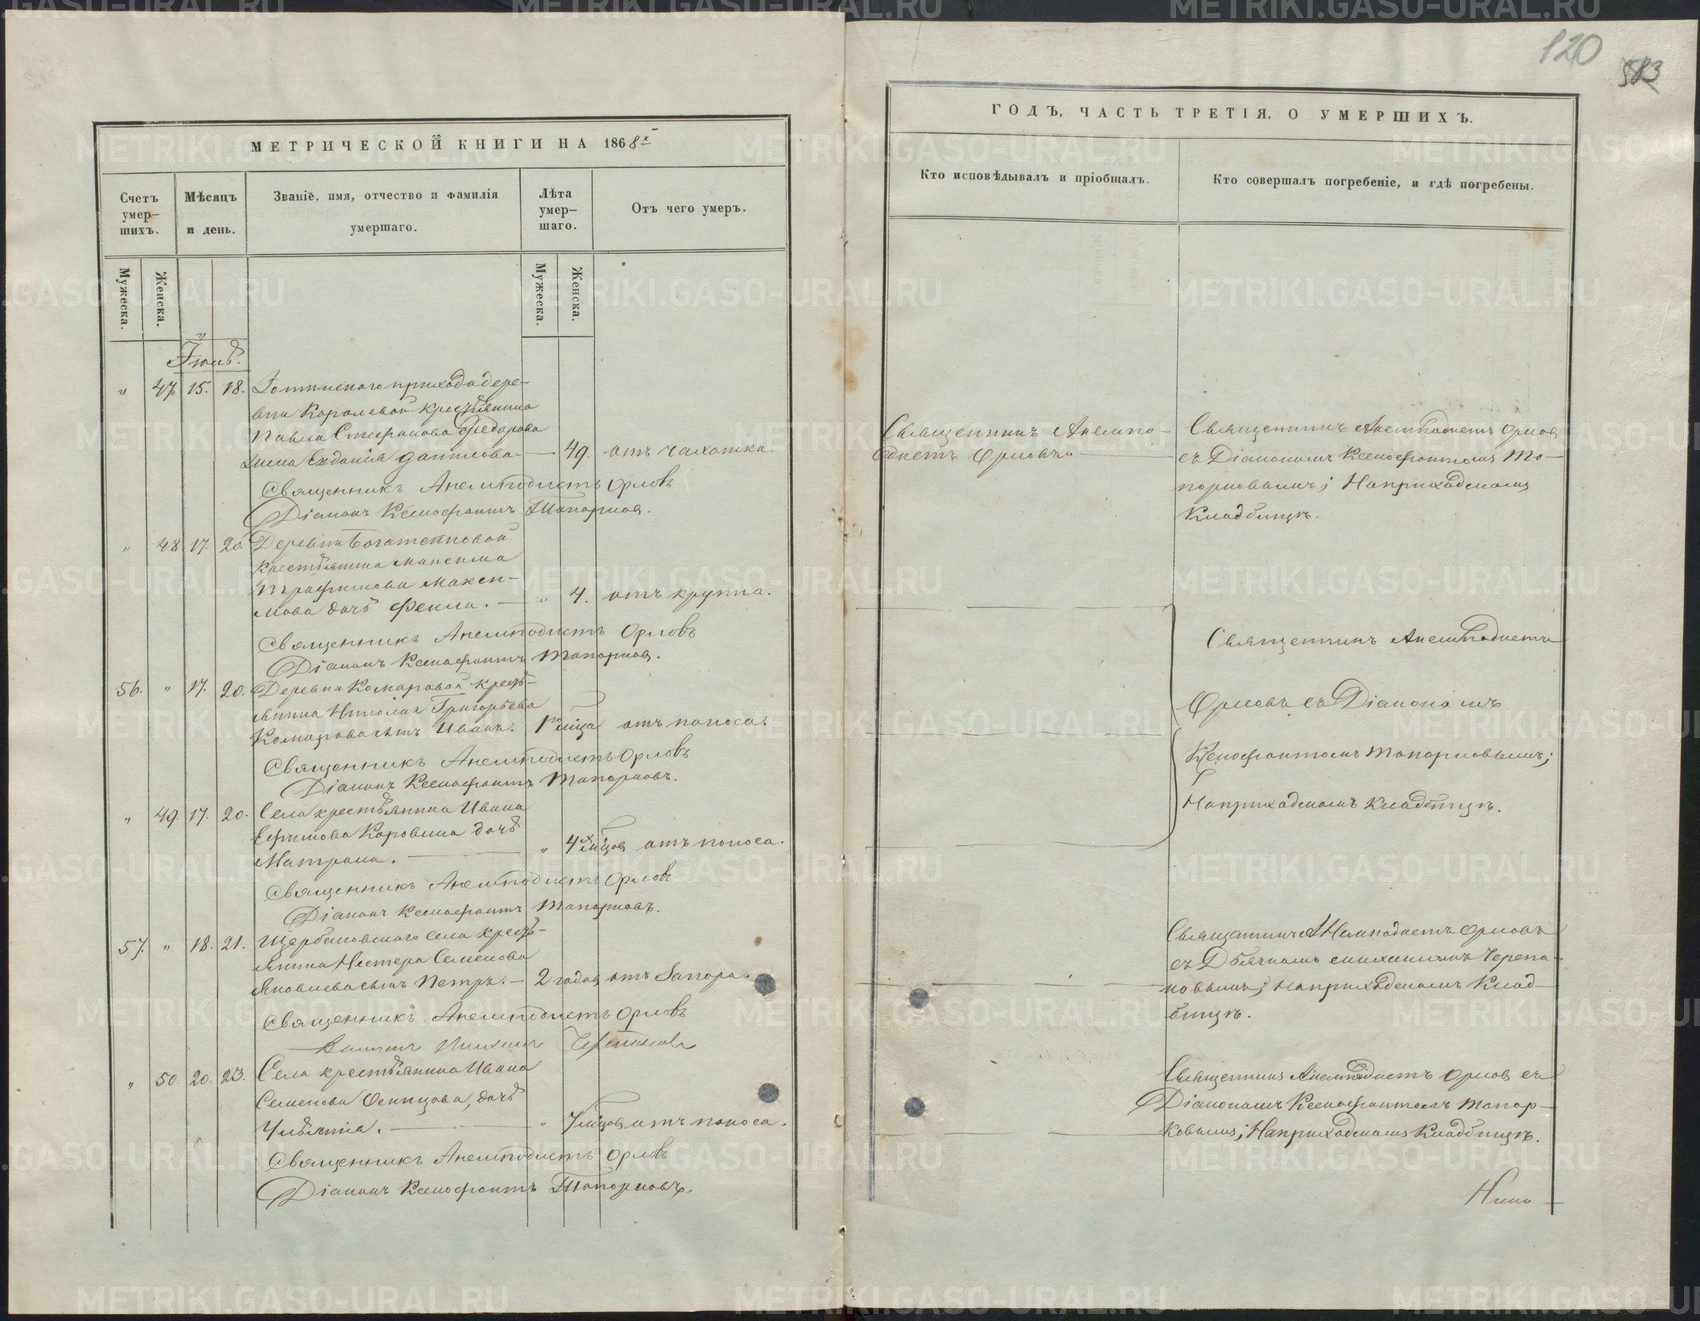 120
583
МЕТРИЧЕСКОЙ КНИГИ НА 1868
Счетъ умер-
шихъ.
Мѣсяцъ
и день.
Званіе, имя, отчество и фамилія
умершаго.
Лѣта
умер-
шаго.
Отъ чего умеръ.
Мужеска.
Женска.
Мужеска.
Женска.
Іюль.
" 47 15. 18. прихода дере-
вни Королевой крестьянина
Павла Стефанова Федорова
жена Данилова. 49. отъ чахотки.
Священникъ Анемподистъ Орловъ
Діаконъ Ксенофонтъ Топорковъ.
" 48 17. 20. Деревни
крестьянина Максима
Трофимова Макси-
мова дочь Фекла. " 4. отъ крупа.
Священникъ Анемподистъ Орловъ
Діаконъ Ксенофонтъ Топорковъ.
56. " 17. 20. Деревни Комаровой кресть-
янина Николая Григорьева
Комарова сынъ Иванъ. 1 мѣсяца отъ поноса.
Священникъ Анемподистъ Орловъ
Діаконъ Ксенофонтъ Топорковъ.
" 49. 17. 20. Села крестьянина Ивана
Ефимова Коровина дочь
Матрона. " 4 отъ поноса.
Священникъ Анемподистъ Орловъ
Діаконъ Ксенофонтъ Топорковъ.
57. " 18. 21. Щербаковскаго села кресть-
янина Нестера Семенова
Яковлева сынъ Петръ. 2 годов отъ запора.
Священникъ Анемподистъ Орловъ
Черепановъ
" 50. 20. 23. Села крестьянина Ивана
Семенова Осинцова, дочь
Улита. " отъ поноса.
Священникъ Анемподистъ Орловъ
Діаконъ Ксенофонтъ Топорковъ.
ГОДЪ, ЧАСТЬ ТРЕТІЯ, О УМЕРШИХЪ.
Кто исповѣдывалъ и пріобщалъ.
Кто совершалъ погребеніе, и гдѣ погребены.
Священникъ Анемпо-
дистъ Орловъ
Священникъ Анемподистъ Орлов
съ Діакономъ Ксенофонтомъ То-
порковымъ; На приходскомъ
Кладбищѣ.
Священникъ Анемподистъ
Орловъ съ Діакономъ
Ксенофонтомъ Топорковымъ;
На приходскомъ Кладбищѣ.
Священникъ Анемподистъ Орловъ
съ Дьячкомъ Черепа-
новымъ; На приходскомъ Клад-
бищѣ.
Священникъ Анемподистъ Орловъ съ
Діакономъ Ксенофонтомъ Топор-
ковымъ; На приходскомъ Кладбищѣ.
METRIKI.GASO-URAL.RU